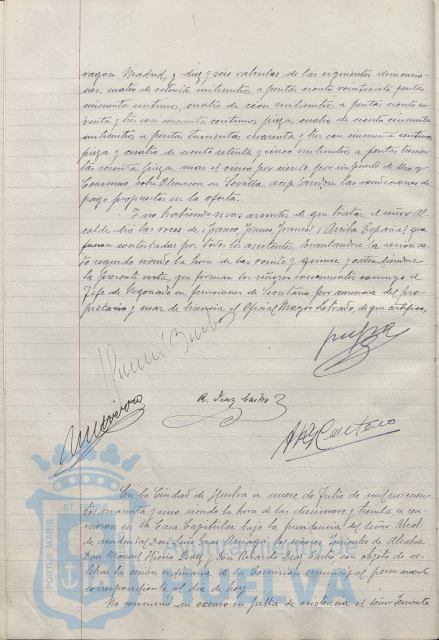 ragon Madrid, y diez y seis valvulas de las siguientes dimensio-
nes: cuatro de setenta milimetros a pesetas ciento veintisiete pesetas
cincuenta centimos, cuatro de cien milimetros a pesetas ciento no-
venta y tres con cincuenta centimos pieza, cuatro de ciento cincuenta
milimetros a pesetas trescientas cuarenta y tres con cincuenta centimos
pieza y cuatro de ciento setenta y cinco milimetros a pesetas
pieza, mas el cinco por ciento por impuesto de Uso y
Consumo sobre Almacen en Sevilla, aceptandose las condiciones de
pago propuestas en la oferta.
Y no habiendo mas asuntos de que tratar, el señor Al-
calde dió las voces de ¡Franco, Franco, Franco! ¡Arriba España! que
fueron contestadas por todos los asistentes, levantandose la sesión
siendo la hora de las veinte y quince y extendiendose
la presente acta, que firman los señores concurrentes conmigo el
Jefe de Negociado en funciones de Secretario por ausencia del pro-
pietario y uso de licencia el Oficial Mayor Letrado, de que certifico,
R. Diaz Castro
En la Ciudad de Huelva a nueve de Julio de mil novecien-
tos cuarenta y uno, siendo la hora de las diecinueve y treinta se
reunieron en la Casa Capitular bajo la presidencia del señor Alcal-
de accidental Don Luis los señores Tenientes de Alcalde
Don Manuel y Don Ricardo Diaz Castro con objeto de ce-
lebrar la sesión ordinaria de la Comisión municipal permanente
correspondiente al dia de hoy.
No concurrio ni excusó su falta de asistencia el señor Teniente
PORTUS MARIS
ET
HUELVA